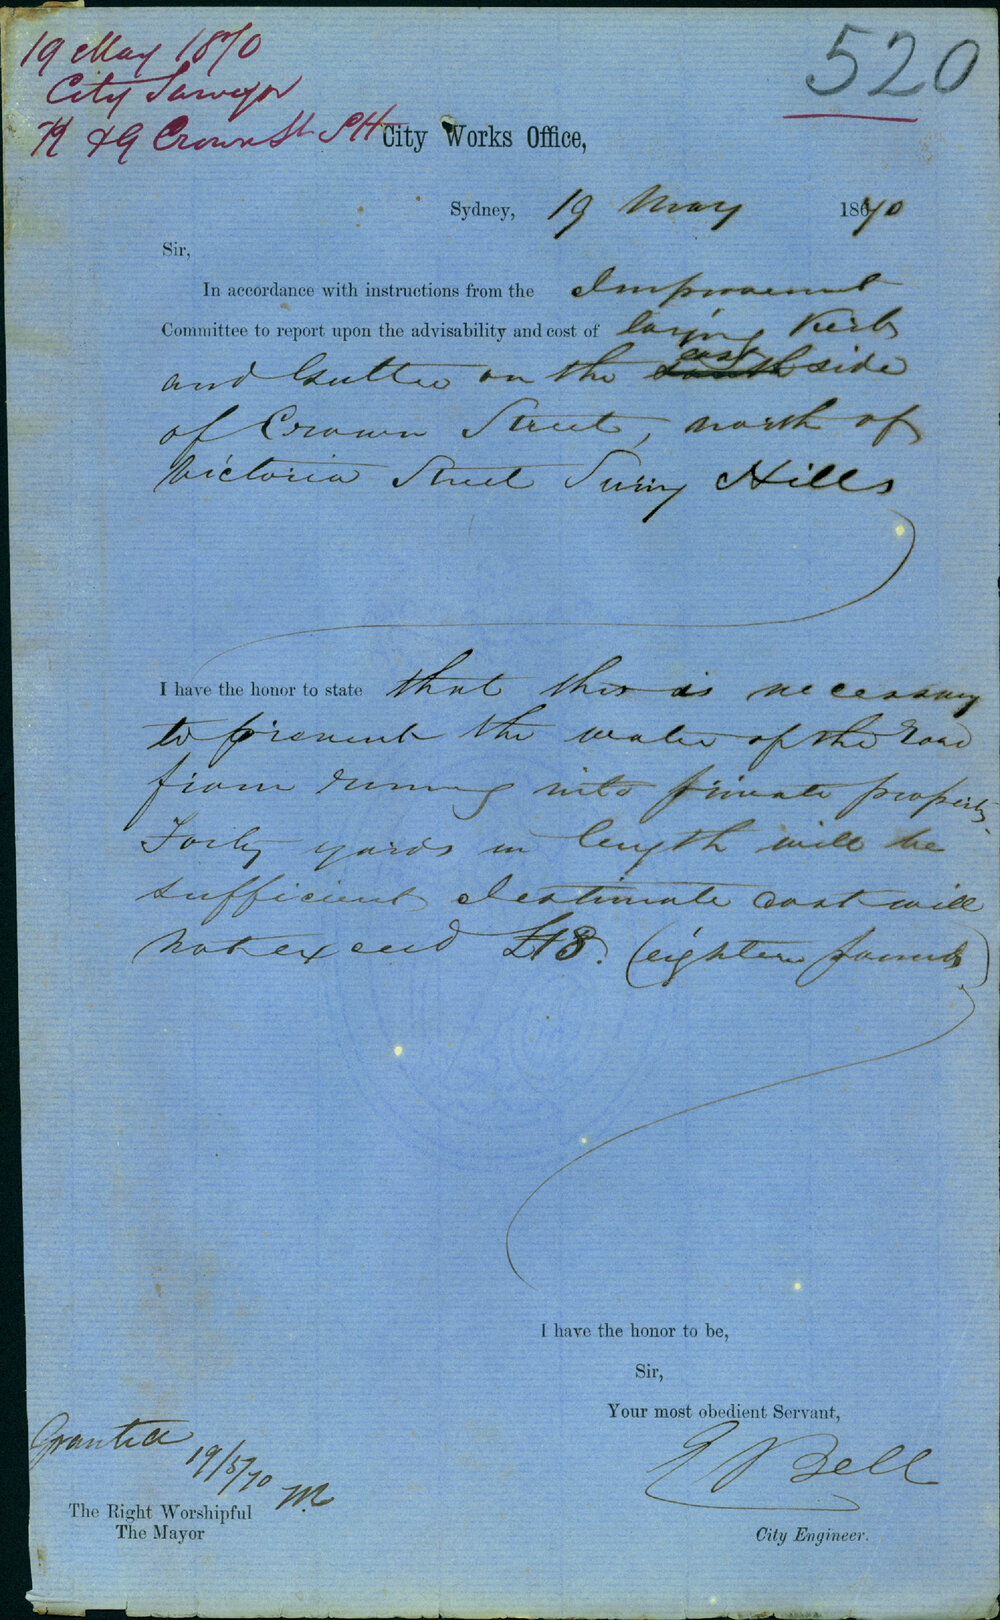 19 May 1870
City Surveyor
K & G Crown St SH
520
City Works Office,
Sydney, 19 May 1870
Sir,
In accordance with instructions from the Improvement
Committee to report upon the advisability and cost of laying Kerb
and Gutter on the south east side
of Crown Street, north of
Victoria Street Surry Hills
I have the honor to state that this is necessary
to prevent the water of the road
from running into private property.
Forty yards in length will be
sufficient I estimate cost will
not exceed £18. (eighteen pounds)
I have the honor to be,
Sir,
Your most obedient Servant,
E Bell
City Engineer.
Granted
19/5/70
The Right Worshipful
The Mayor